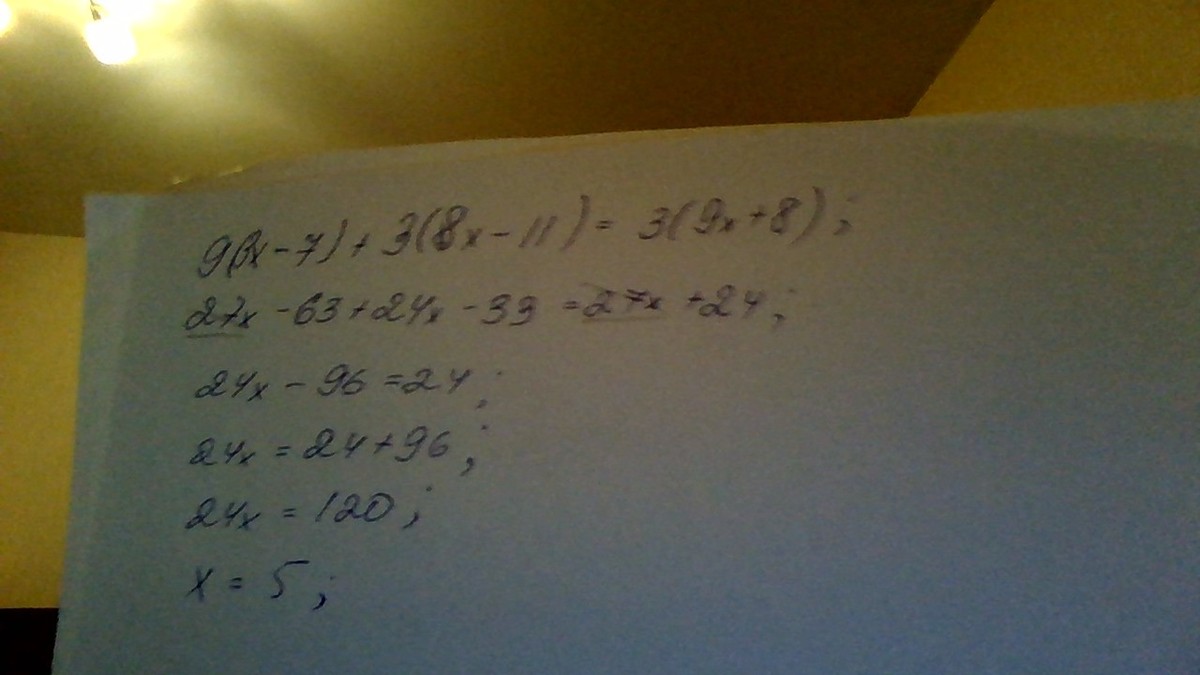 9(3x-7)+3(8x-11)=3(9x+8);
27x-63+24x-33=27x+24;
24x-96=24;
24x=24+96;
24x=120;
x=5;